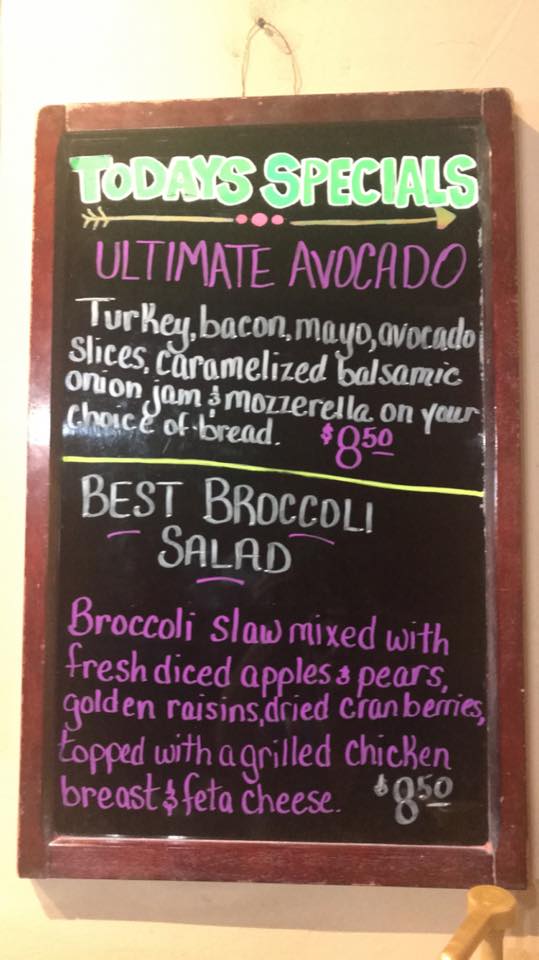 TODAYS SPECIALS
ULTIMATE AVOCADO
Turkey, bacon, mayo, avocado
slices, caramelized balsamic
onion jam & mozzerella on your
choice of bread. $8.50
BEST BROCCOLI
SALAD
Broccoli slaw mixed with
fresh diced apples & pears,
golden raisins, dried cranberries,
topped with a grilled chicken
breast & feta cheese. $8.50